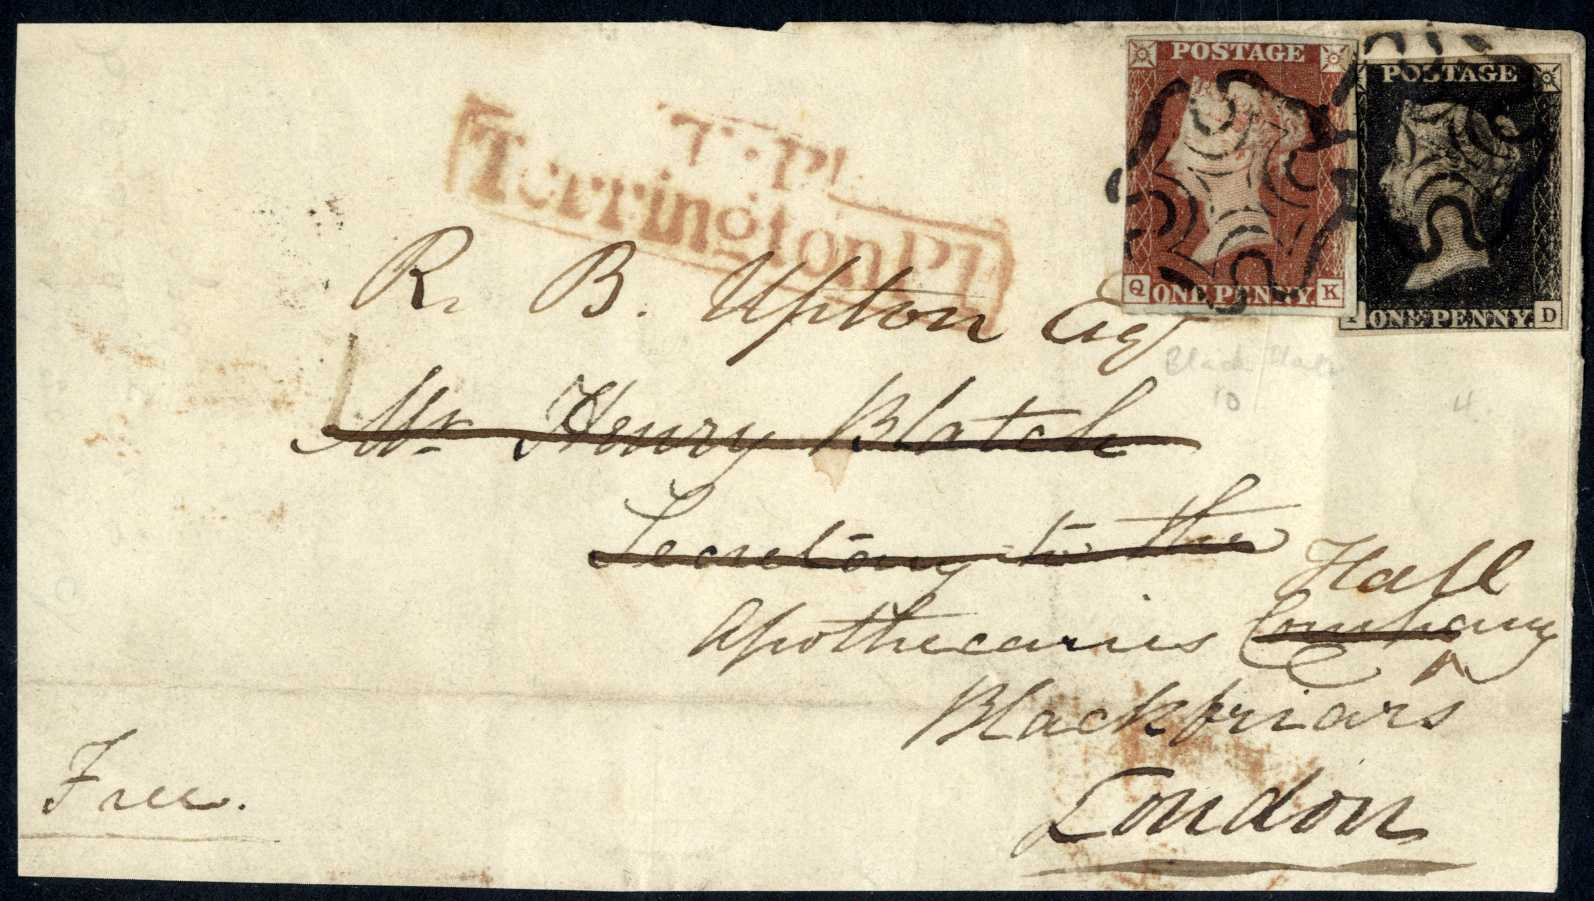 POSTAGE
Q ONE PENNY K
POSTAGE
ONE PENNY D
T.P.
Torrington Pl
R. B. Upton Esq
Black
10
4
Mr Henry Blatch
Secretary to the
Hall
Apothecaries Company
Blackfriars
London
Free.